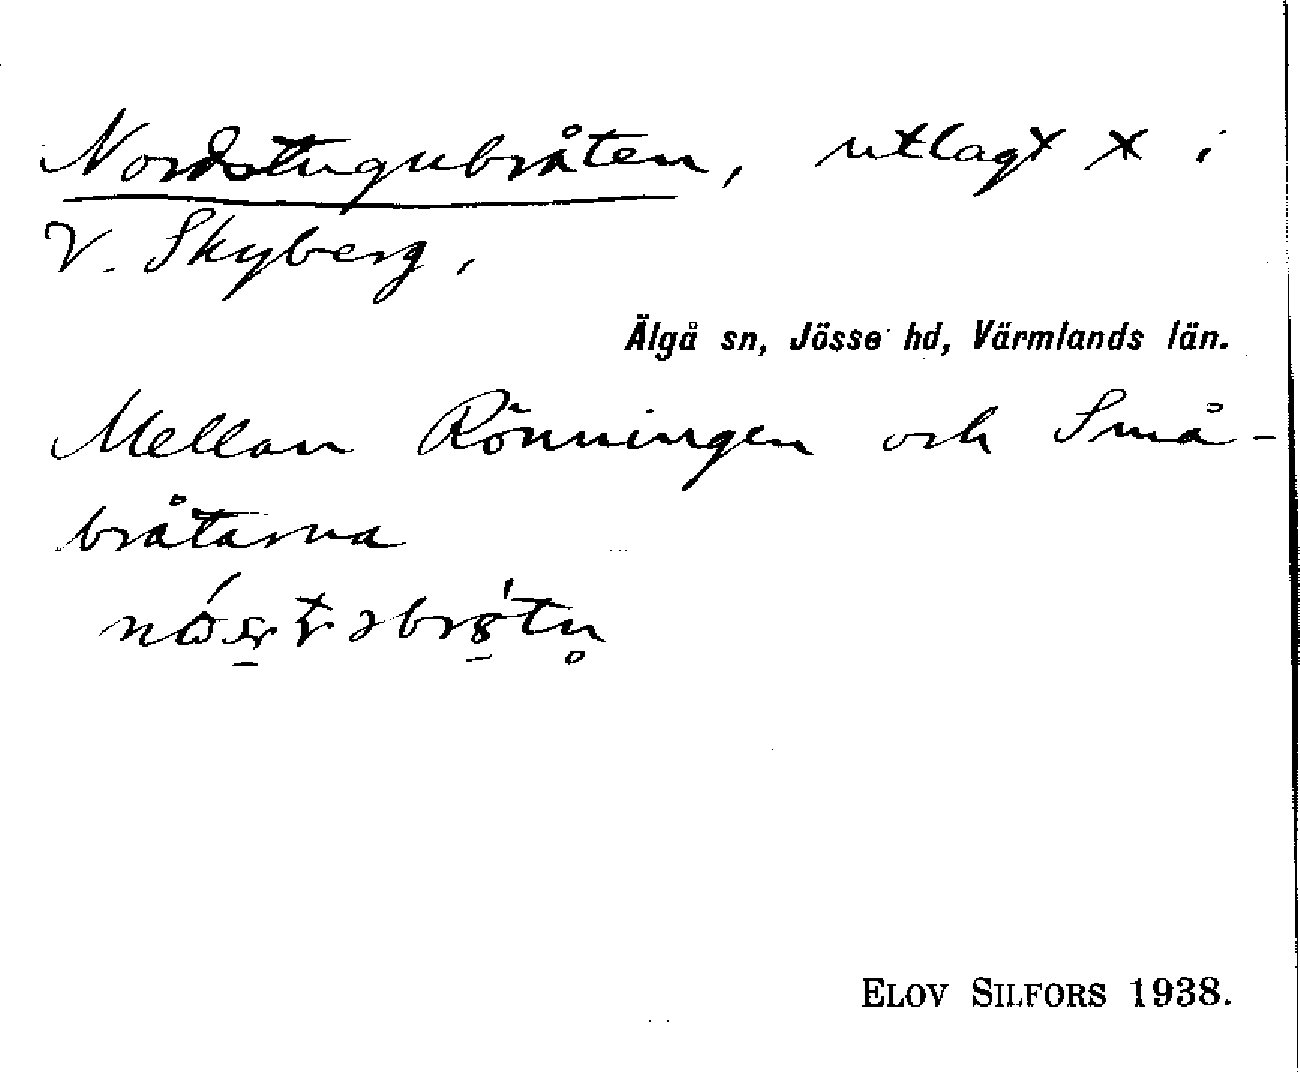 Nordstugubråten, utlagt x i
V. Skyberg,
Älgå sn, Jösse hd, Värmlands län.
Mellan Rönningen och Små-
bråtarna
ELOV SILFORS 1938.